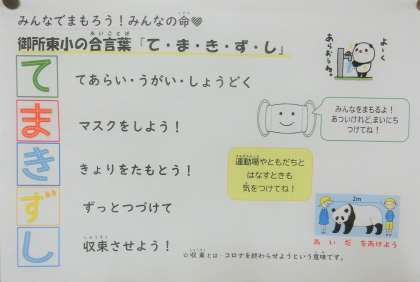 みんなでまもろう！みんなの命♥
御所東小の合言葉「て・ま・き・ず・し」
て てあらい・うがい・しょうどく
ま マスクをしよう！
き きょりをたもとう！
ず ずっとつづけて
し 収束させよう！
よーく
あらおうね。
みんなをまもるよ！
あついけれど、まいにち
つけてね！
運動場やともだちと
はなすときも
気をつけてね！
2m
あいだをあけよう
☆収束とは…コロナを終わらせようという意味です。